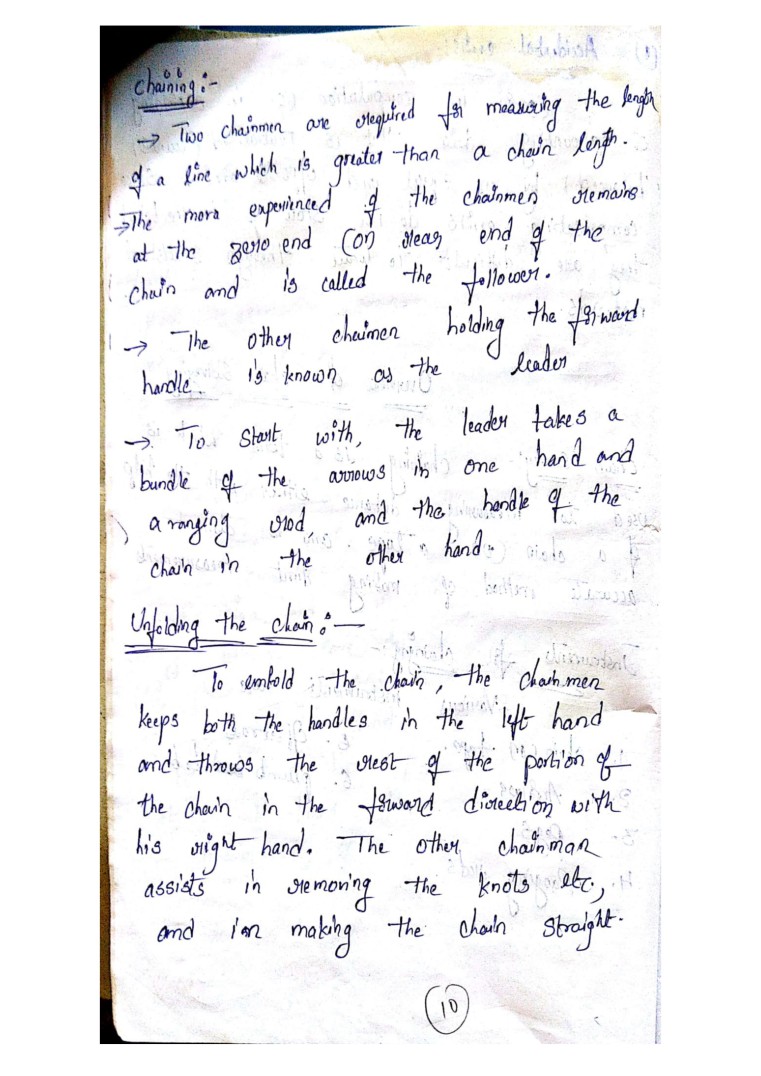 Chaining :-
→ Two chainmen are required for measuring the length
of a line which is greater than a chain length.
→ The more experienced of the chainmen remains
at the zero end (or) rear end of the
chain and is called the follower.
→ The other chaimen holding the forward
handle is known as the leader
→ To start with, the leader takes a
bundle of the arrows in one hand and
a ranging rod, and the handle of the
chain in the other hand.
Unfolding the chain :-
To emfold the chain, the chainmen
keeps both the handles in the left hand
and throws the rest of the portion of
the chain in the forward direction with
his right hand. The other chainman
assists in removing the knots etc.,
and in making the chain straight.
10